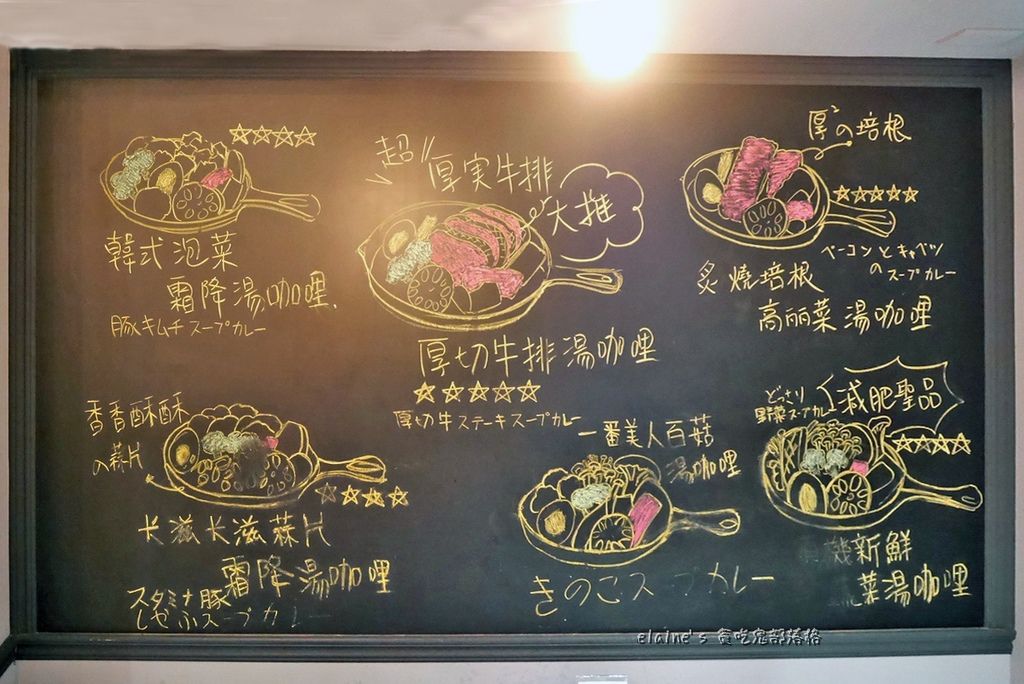 ☆☆☆☆
韓式泡菜
霜降湯咖哩
豚キムチスープカレー
超
厚実牛排
大推
厚切牛排湯咖哩
☆☆☆☆☆
厚切牛ステーキスープカレー
厚²の培根
☆☆☆☆☆
ベーコンとキャベツ
のスープカレー
炙燒培根
高丽菜湯咖哩
香香酥酥
の蒜片
☆☆☆☆
卡滋卡滋蒜片
霜降湯咖哩
スタミナ豚
しゃぶスープカレー
一番美人百菇
湯咖哩
きのこス プカレー
どっさり
野菜スープカレー
減肥聖品
☆☆☆☆
機新鮮
菜湯咖哩
elaine's 貪吃鬼部落格